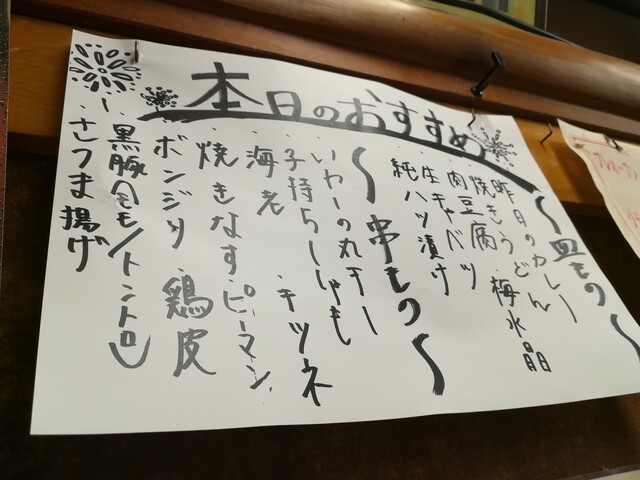 本日のおすすめ
~皿もの~
昨日のカレー
焼きうどん 梅水晶
肉豆腐
生キャベツ
純ハツ漬け
~串もの~
いわしの丸干し
子持ちししゃも
海老 キツネ
焼きなす ピーマン
ボンジリ 鶏皮
黒豚 トントロ
さつま揚げ